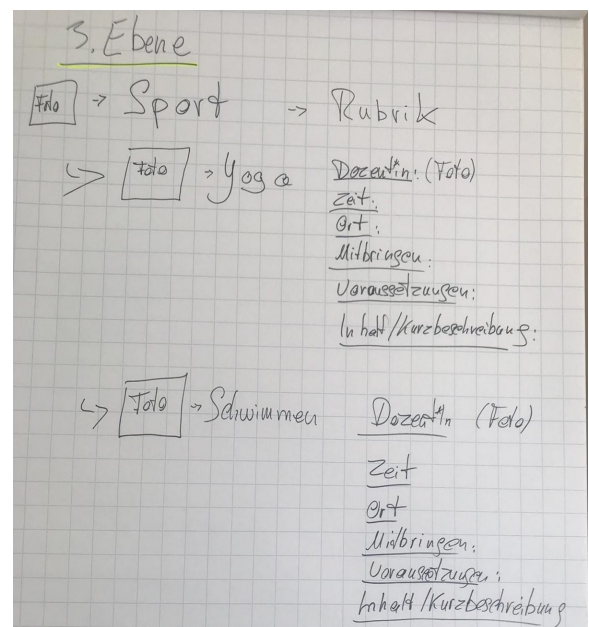 3. Ebene
Foto → Sport → Rubrik
↳ Foto → Yoga Dozent*in: (Foto)
Zeit:
Ort:
Mitbringen:
Voraussetzungen:
Inhalt/Kurzbeschreibung:
↳ Foto → Schwimmen Dozent*In (Foto)
Zeit
Ort
Mitbringen:
Voraussetzungen:
Inhalt/Kurzbeschreibung